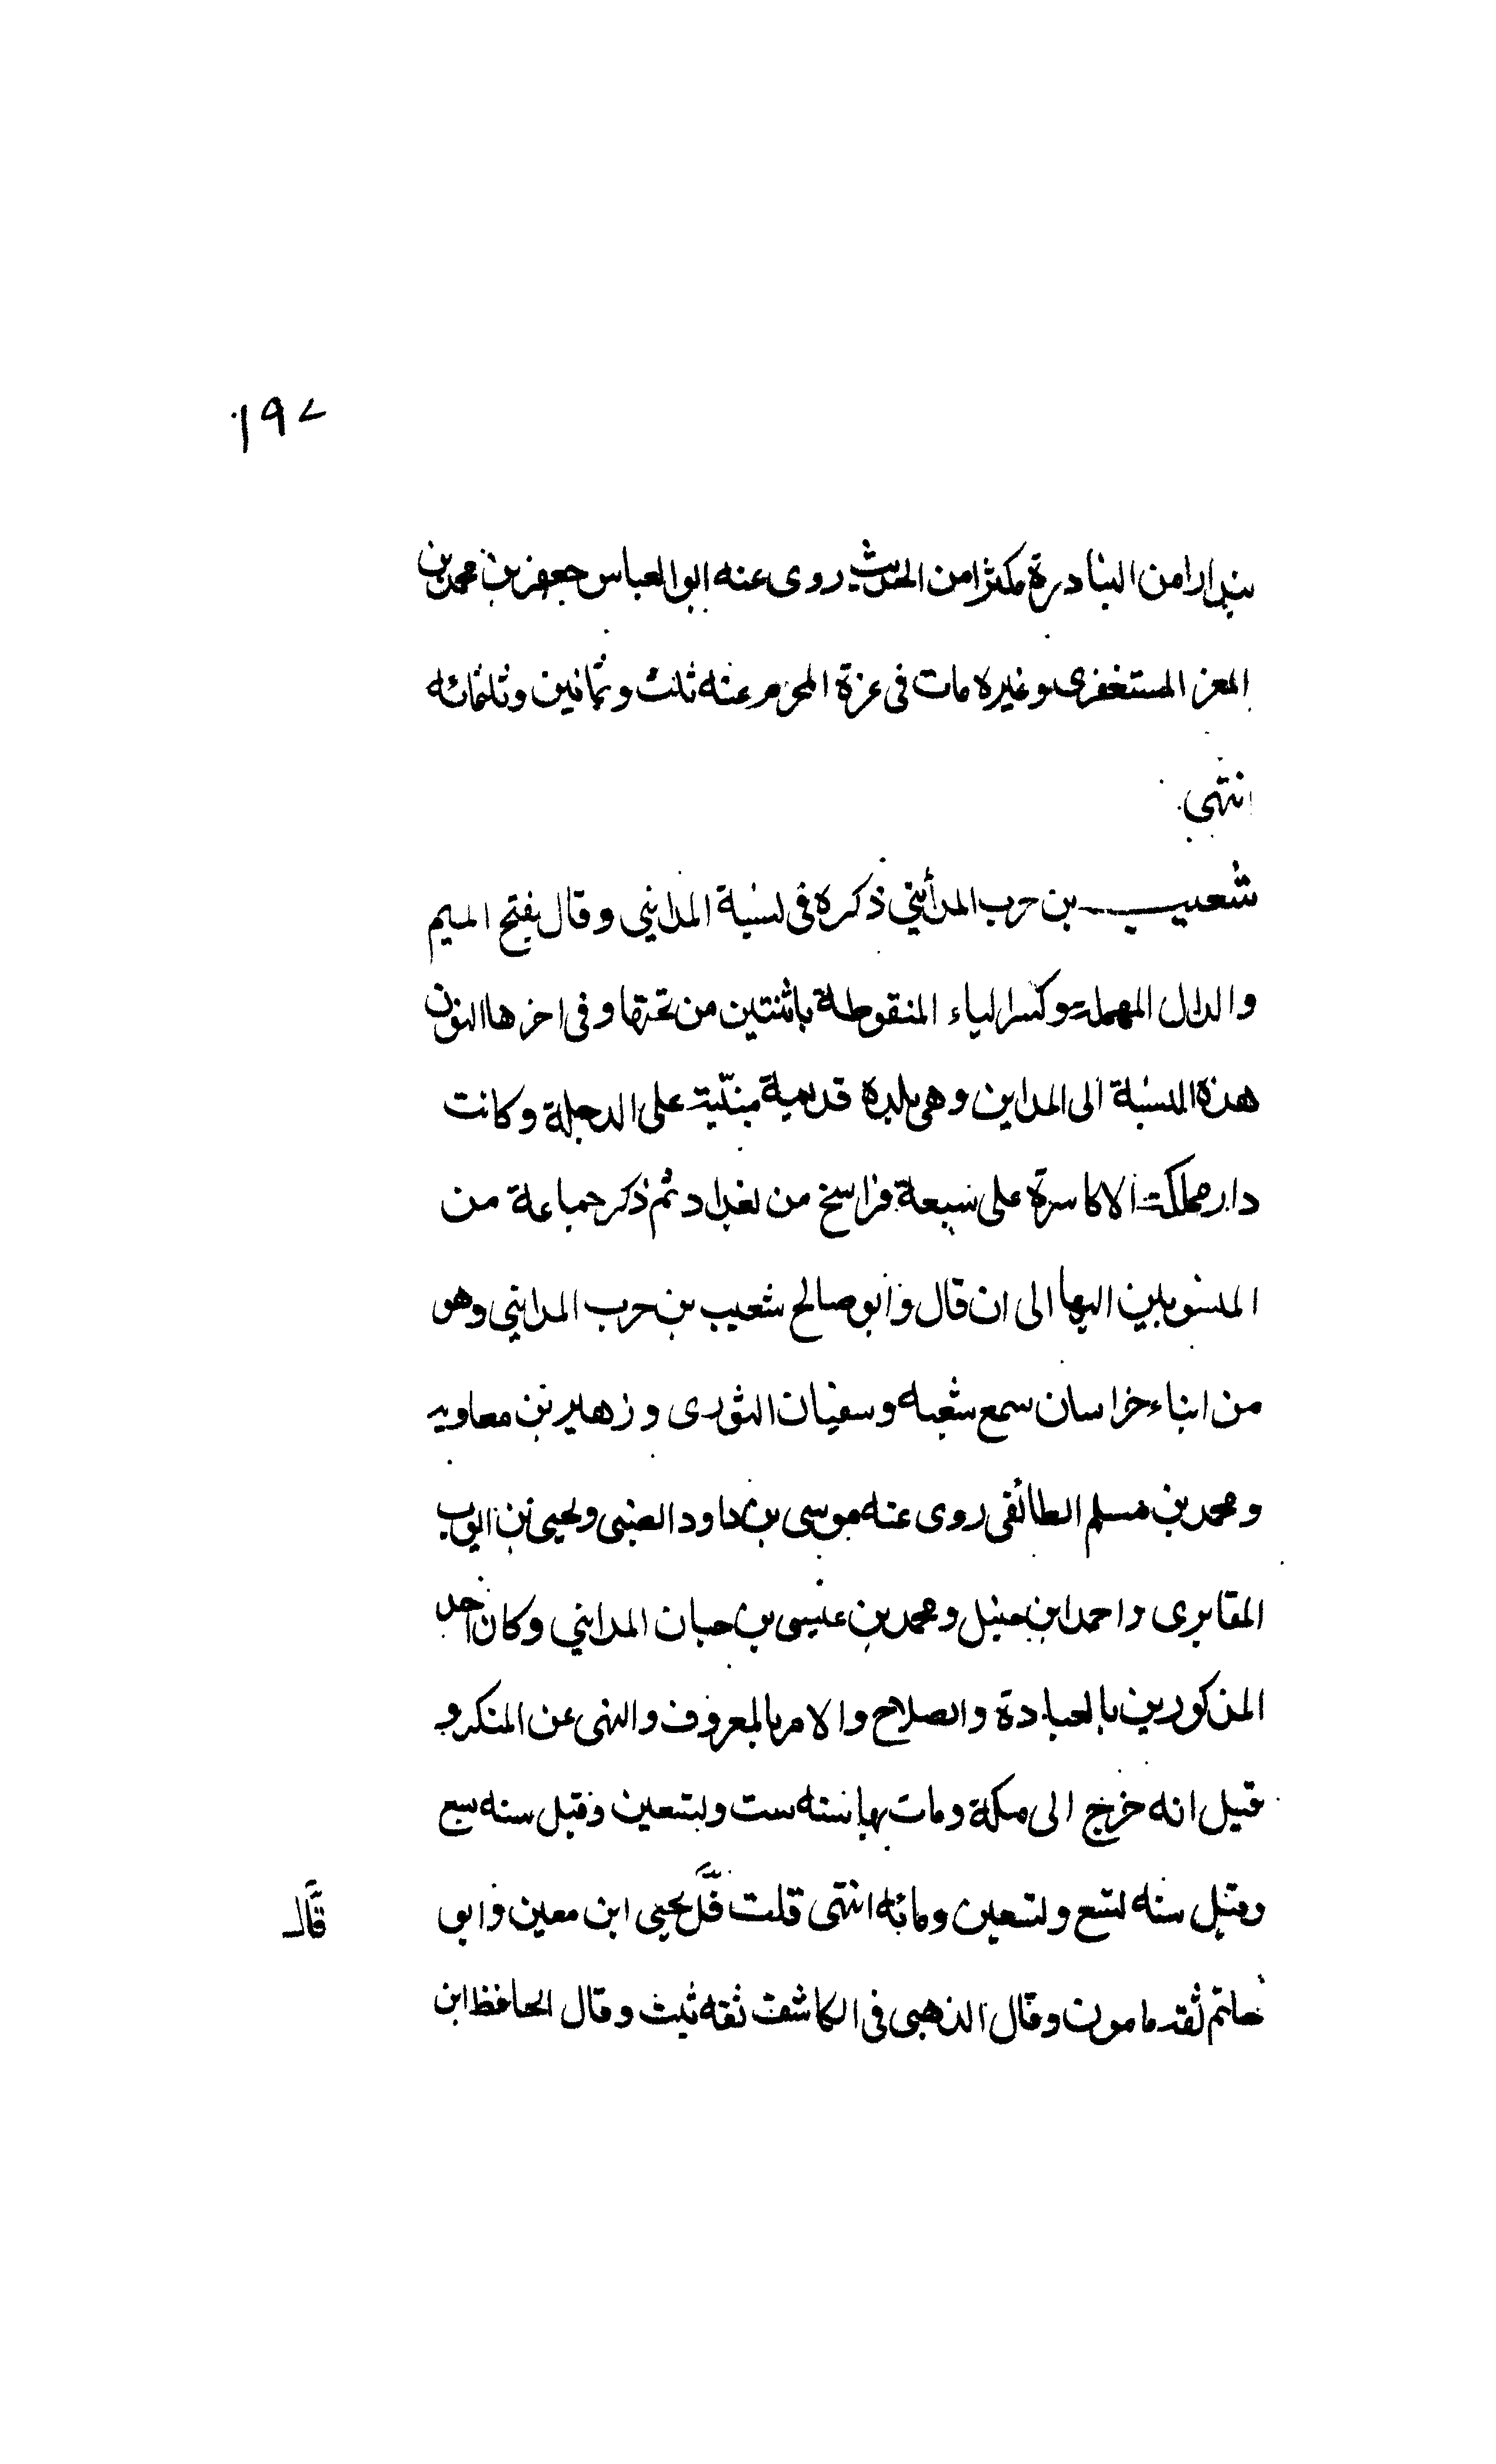 ۱۹۷
بندارا من البنادرة مكثرا من الحديث روى عنه ابو العباس جعفر بن محمد بن
المعز المستغفرى وغيره مات فى غرة المحرم عنه ثلث وثمانين وثلثمائه
انتهى
شعيب بن حرب المدائني ذكره فى نسبة المدايني وقال بفتح الميم
والدال المهملة وكسر الياء المنقوطة باثنتين من تحتها وفى اخرها النون
هذه النسبة الى المداين وهى بلدة قديمة مبنيّة على الدجلة وكانت
دار مملكة الاكاسرة على سبعة فراسخ من بغداد ثم ذكر جماعة من
المنسوبين اليها الى ان قال وابو صالح شعيب بن حرب المدايني وهو
من ابناء خراسان سمع شعبه وسفيان الثورى وزهير بن معاويه
ومحمد بن مسلم الطائفى روى عنه موسى بن داود الضبى ويحيى بن ايوب
المقابرى واحمد ابن حنبل ومحمد بن عيسى بن حبان المدايني وكان احد
المذكورين بالعبادة والصلاح والامر بالمعروف والنهى عن المنكر و
قيل انه خرج الى مكة ومات بها سنه ست وتسعين وقيل سنه سبع
وقيل سنه تسع وتسعين ومائه انتهى قلت قال يحيى ابن معين وابو
قال
حاتم ثقه مامون وقال الذهبى فى الكاشف ثقه ثبت وقال الحافظ ابن